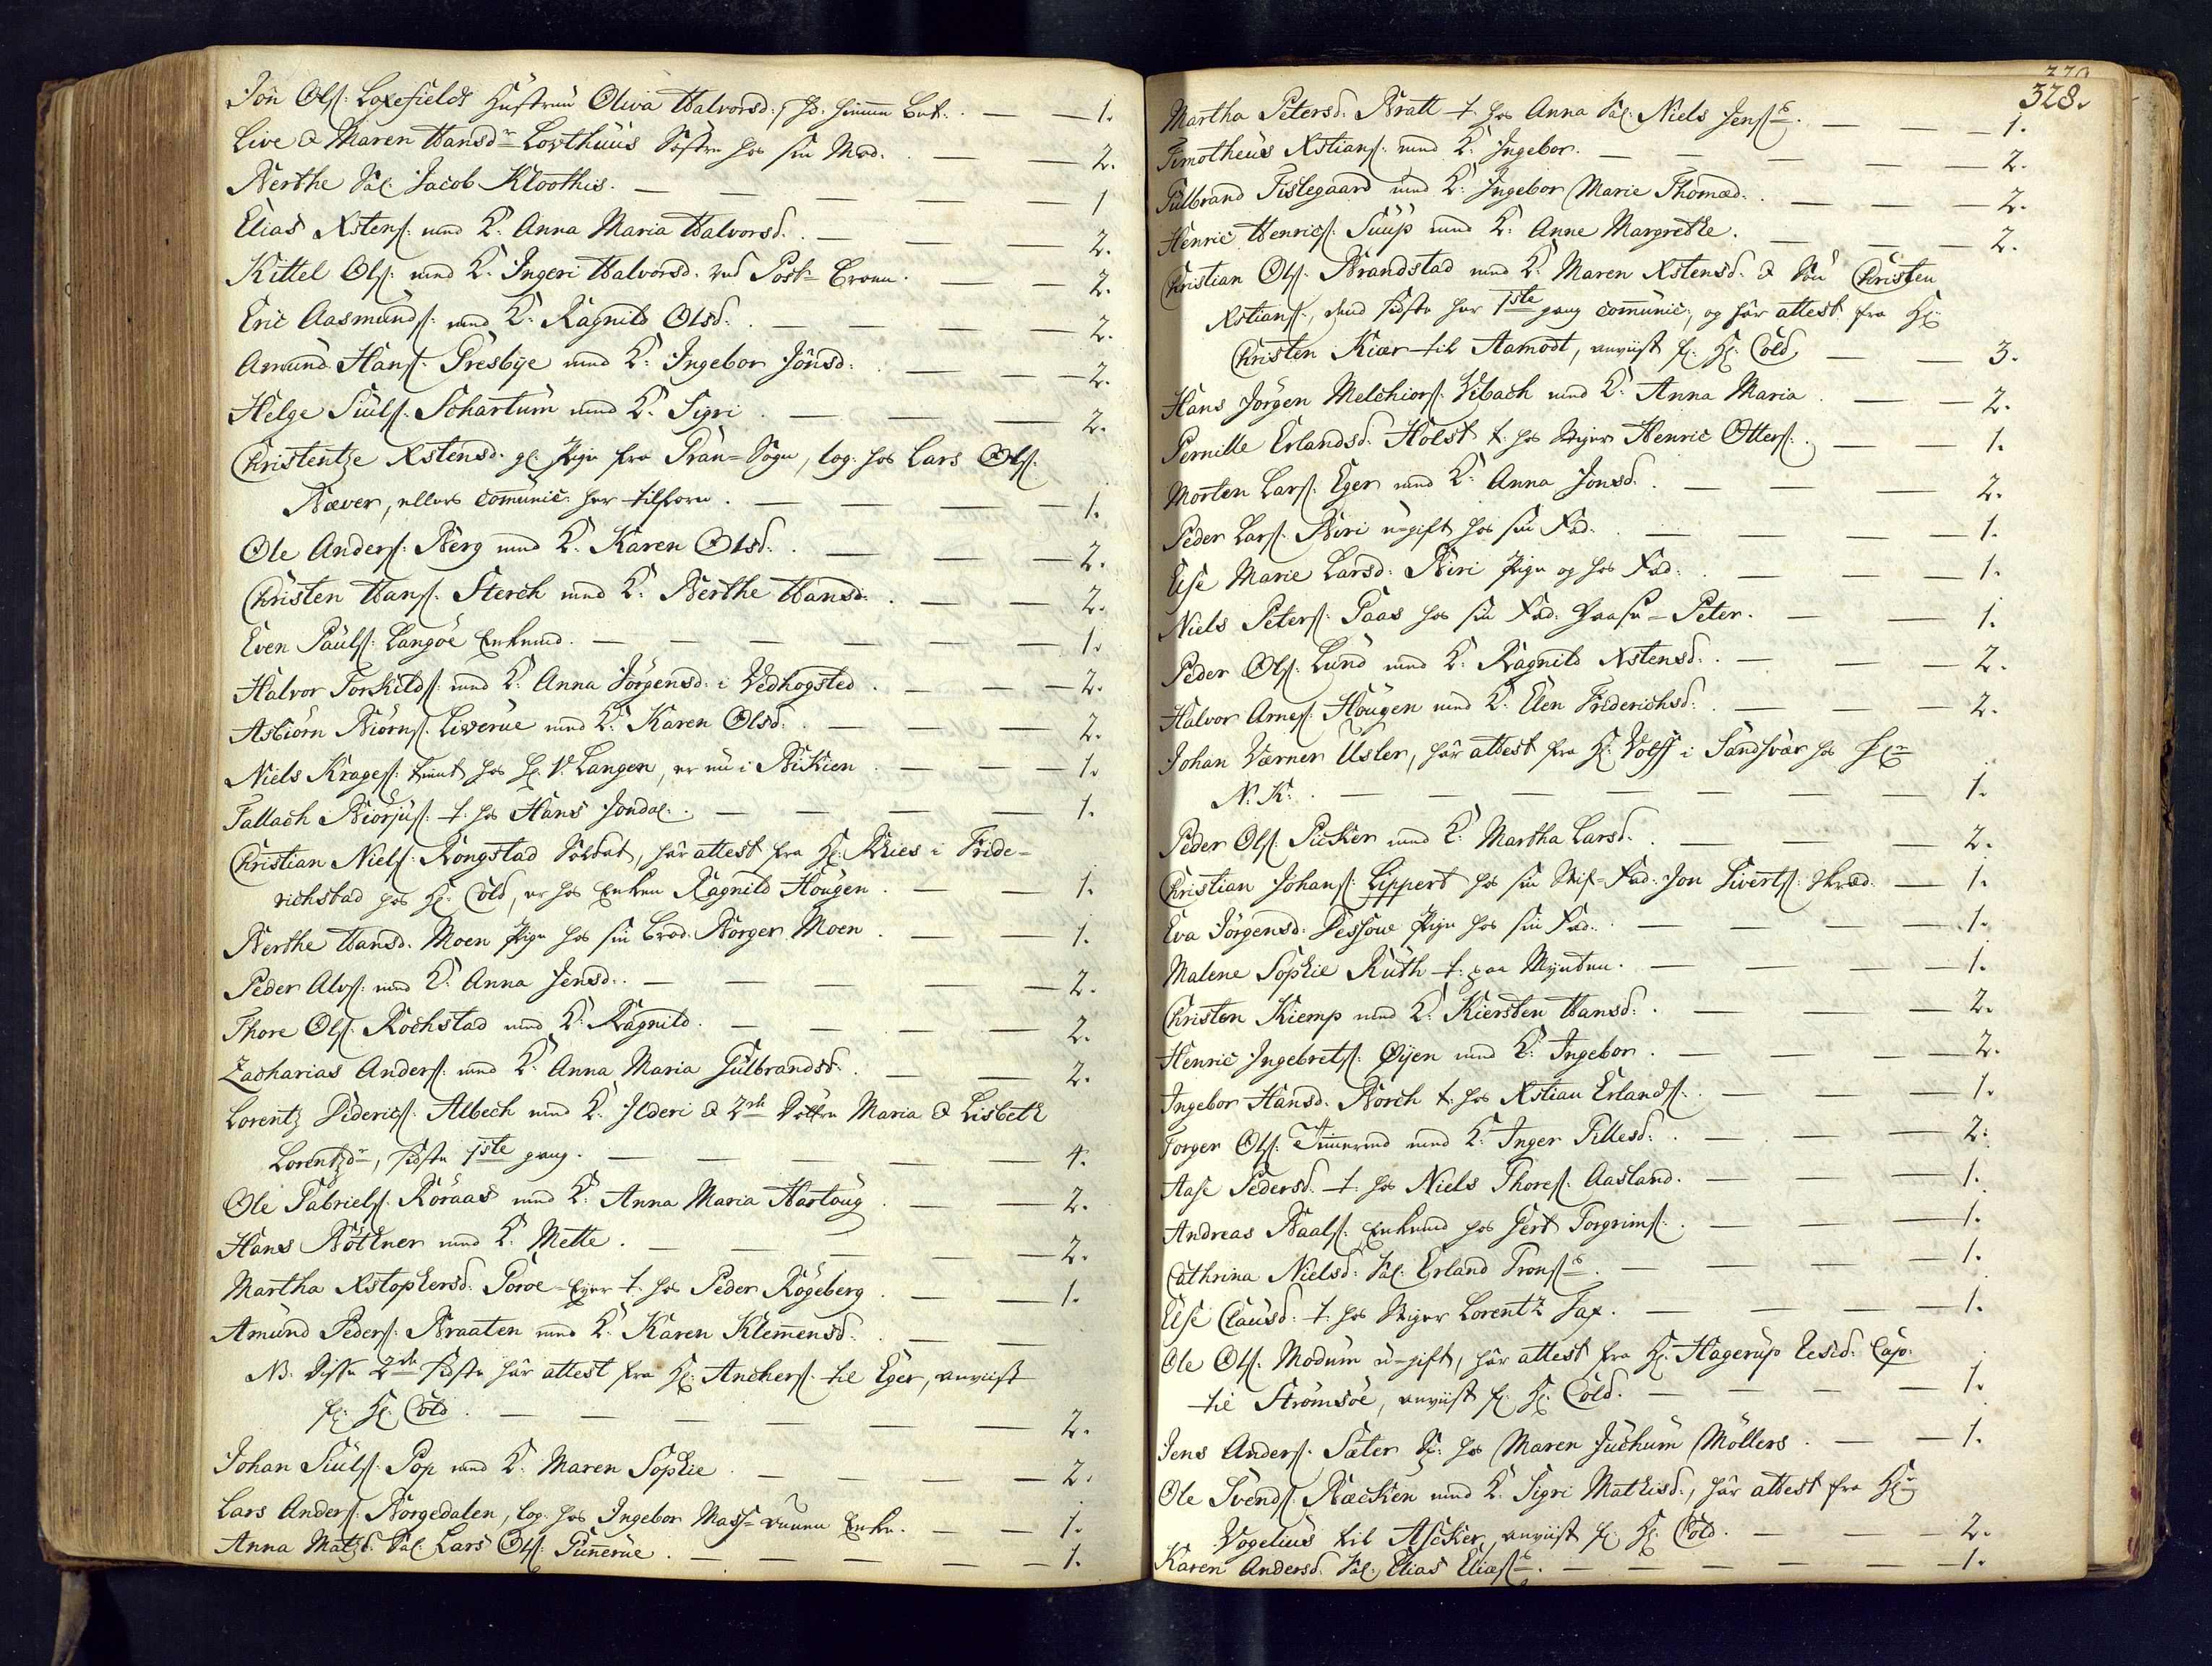 Jon Olss: Loxefields Hustrue Oliva Halvorsd: 1.
Live & Maren Hansdr Lovthuus Søstre hos sin Mod. 2.
Berthe Sal. Jacob Kloothis. 1
Elias Xstenss: med K: Anna Maria Halvorsd. 2.
Kittel Olss: med K: Ingeri Halvorsd. ved Post-Broen. 2.
Eric Aasmundss: med K: Ragnild Olsd: 2.
Amund Hanss: Presbye med K: Ingebor Jönsd: 2.
Helge Siulss: Schartum med K: Sigri 2.
Christentze Xstensd: gl: Pige fra Gran-Sogn, log. hos Lars Olss:
Næver, ellers com̄unic: her tilforn. 1.
Ole Anderss: Berg med K: Karen Olsd: 2.
Christen Hanss: Sterch med K: Berthe Hansd: 2.
Even Paulss: Langöe Enkemd. 1.
Halvor Torkildss: med K: Anna Jörgensd: i Vedhogsted 2.
Asbiörn Biörnss: Liverue med K: Karen Olsd: 2.
Niels Kragess: tient hos Hr: V: Langen, er nu i Bükien 1.
Tallach Biörjuss: t: hos Hans Jondal. 1.
Christian Nielss: Rongstad Soldat, har attest fra Hr: Ries i Fride-
richstad hos Hr: Cold, er hos Enken Ragnild Hougen 1.
Berthe Hansd: Moen Pige hos sin Brod. Borger Moen 1.
Peder Alvss: med K: Anna Jensd: 2.
Thore Olss: Rochstad med K: Ragnild. 2.
Zacharias Anderss: med K: Anna Maria Gulbrandsd: 2.
Lorentz Didericss: Albech med K: Ilderi & 2de Døttre Maria & Lisbeth
Lorentzdr, sidste 1ste gang. 4.
Ole Gabrielss: Röraas med K: Anna Maria Hartoug 2.
Hans Böttner med K: Mette 2.
Martha Xstophersd: Poroe-Eger t: hos Peder Rogeberg 1.
Amund Pederss: Braaten med K: Karen Klem̄ensd:
NB. disse 2de sidste har attest fra Hr: Ancherss: til Eger, anviist
fr: Hr: Cold 2.
Johan Siulss: Pop med K: Maren Sophie 2.
Lars Anderss: Borgedalen, log. hos Ingebor Enke. 1.
Anna Matzd: Sal. Lars Olss: Gun̄erue 1.
328.
Martha Petersd: Bratt t: hos Anna Sal. Niels Jenss: 1.
Timotheus Xstianss: med K: Ingebor. 2.
Gulbrand Tislegaard med K: Ingebor Marie Thomæd: 2.
Henric Henricss: Suup med K: Anne Margrethe. 2.
Christian Olss: Brandstad med K: Maren Xstensd: & Søn Christen
Xstianss:, med sidste har 1ste gang com̄unic:, og har attest fra Hr:
Christen Kiær til Aamodt, anviist fr: Hr: Cold, 3.
Hans Jörgen Melchiorss: Vibach med K: Anna Maria 2.
Pernille Erlandsd: Holst t: hos Stiger Henric Otterss: 1.
Morten Larss: Eger med K: Anna Jonsd: 2.
Peder Larss: Biri u-gift hos sin Fad. 1.
Else Marie Larsd: Biri Pige og hos Fad: 1.
Niels Peterss: Paas hos sin Fad. Peter. 1.
Peder Olss: Lund med K: Ragnild Xstensd: 2.
Halvor Arness: Hougen med K: Elen Friderichsd: 2.
Johan Værner Usler, har attest fra Hr: Volff i Sandsvær hos Hr:
N: K: 1.
Peder Olss: Picker med K: Martha Larsd. 2.
Christian Johanss: Lippert hos sin Stif-Fad: Jon Sivertss: Skræd. 1.
Eva Jörgensd: Dessouw Pige hos sin Fad: 1.
Malene Sophie Ruth t: paa Mynten. 1.
Christen Kiemp med K: Kiersten Hansd: 2.
Henric Ingebretss: Øyen med K: Ingebor. 2.
Ingebor Hansd: Borch t: hos Xstian Erlandss: 1.
Torger Olss: Tim̄ermd med K: Inger Tillesd: 2.
Aase Pedersd. t: hos Niels Thoress: Aasland. 1.
Andreas Baalss: Enkemd hos Gert Torgrimss: 1.
Cathrina Nielsd: Sal. Erland Tronss: 1.
Else Clausd: t: hos Stiger Lorentz Fax. 1.
Ole Olss: Modum u-gift, har attest fra Hr: Hagerup Resid: Cap:
til Strömsöe, anviist fr: Hr: Cold. 1.
Jens Anderss: Sæter hos Maren Juchum Möllers. 1.
Ole Svendss: Bæcken med K: Sigri Mathisd:, har attest fra Hr:
Vogelius til Ascker, anviist fr: Hr: Cold. 2.
Karen Andersd. Sal. Elias Eliæss: 1.